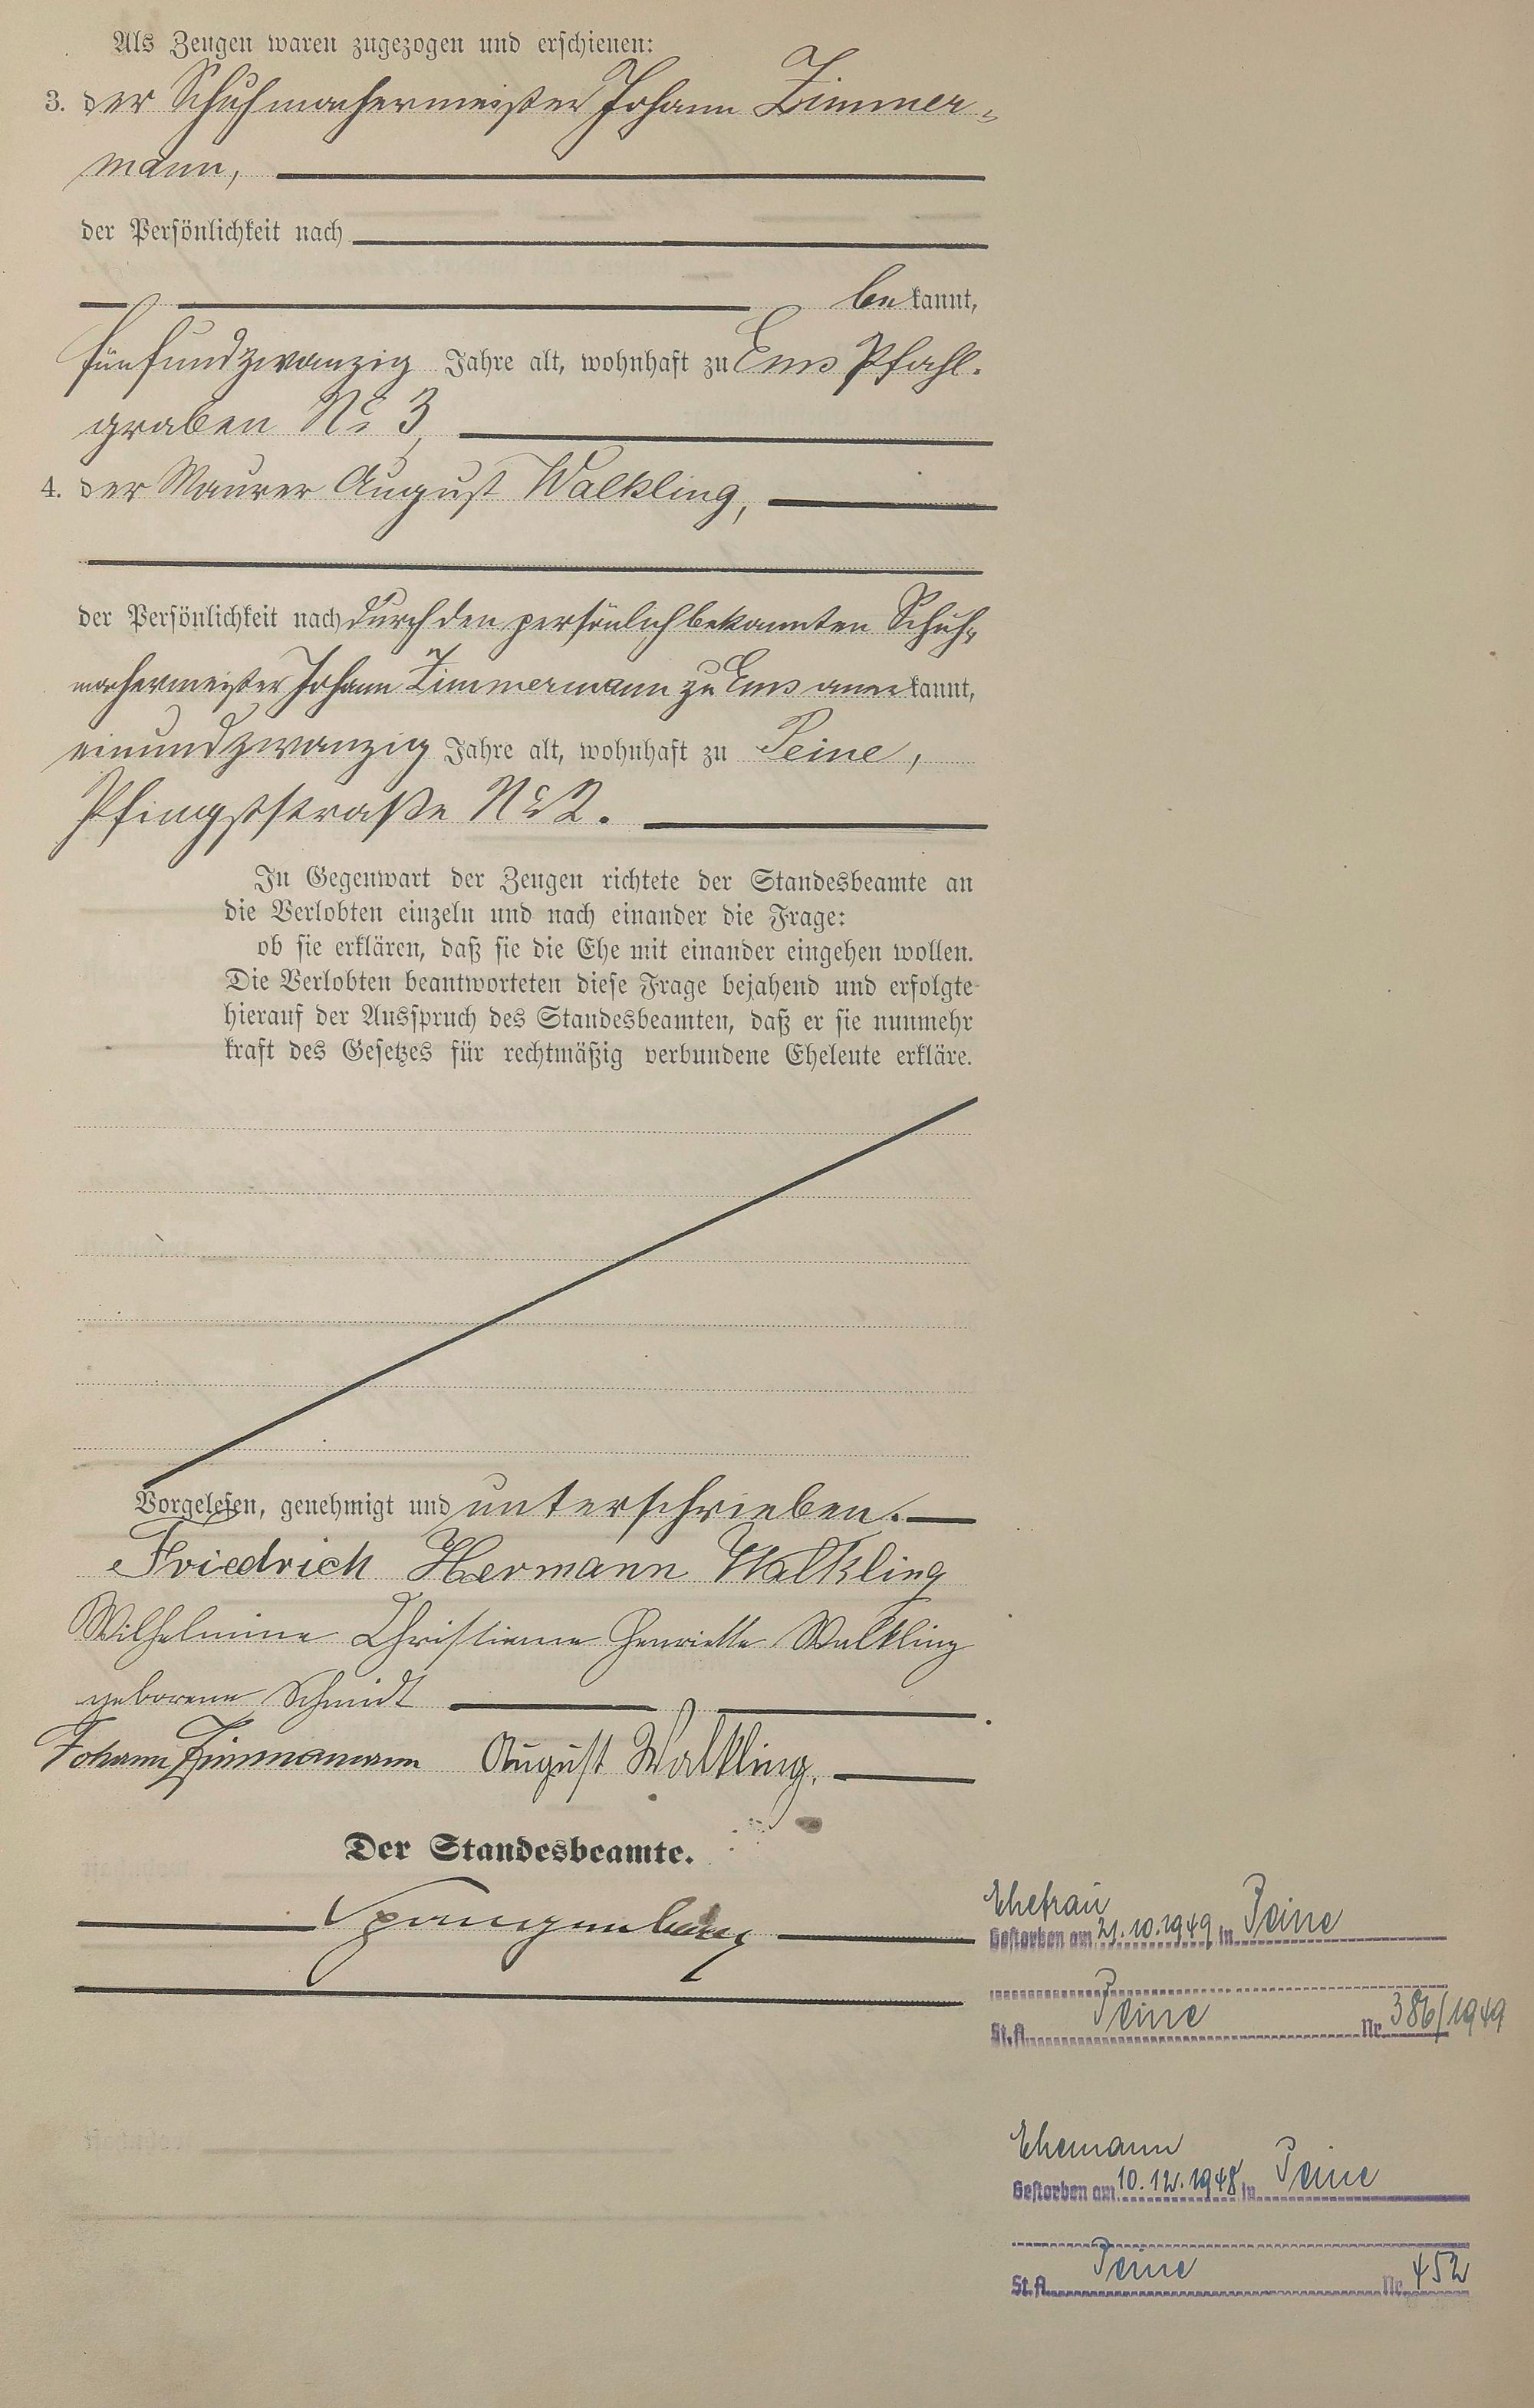 Als Zeugen waren zugezogen und erschienen:
3. der Schuhmachermeister Johann Zimmer-
mann,
der Persönlichkeit nach
bekannt,
fünfundzwanzig Jahre alt, wohnhaft zu Ems Pfahl-
graben No 3,
4. der Maurer August Walkling,
der Persönlichkeit nach durch den persönlich bekannten Schuh-
machermeister Johann Zimmermann zu Ems anerkannt,
einundzwanzig Jahre alt, wohnhaft zu Peine,
Pfingststraße No 2.
In Gegenwart der Zeugen richtete der Standesbeamte an
die Verlobten einzeln und nach einander die Frage:
ob sie erklären, daß sie die Ehe mit einander eingehen wollen.
Die Verlobten beantworteten diese Frage bejahend und erfolgte
hierauf der Ausspruch des Standesbeamten, daß er sie nunmehr
kraft des Gesetzes für rechtmäßig verbundene Eheleute erkläre.
Vorgelesen, genehmigt und unterschrieben.
Friedrich Hermann Walkling
Wilhelmine Christiane Henriette Walkling
geborene Schmidt
Johann Zimmermann August Walkling.
Der Standesbeamte.
Spangenberg
Ehefrau
Gestorben am 21.10.1949 in Peine
St.A. Peine Nr. 386/1949
Ehemann
Gestorben am 10.12.1948 in Peine
St.A. Peine Nr. 452